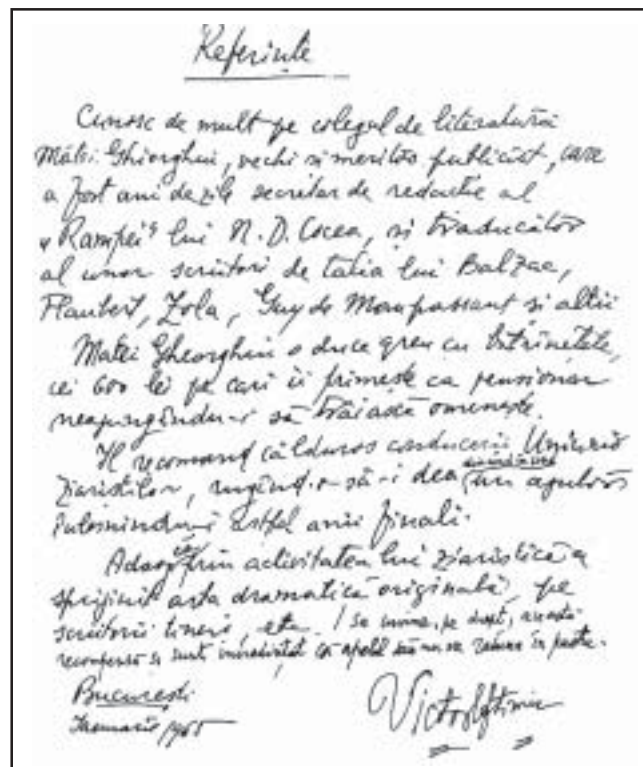 Referinte
Cunosc de mult pe colegul de literatură
Matei Gheorghiu, vechi si meritos publicist, care
a fost ani de zile secretar de redactie al
„Rampei" lui N. D. Cocea, si traducător
al unor scriitori de talia lui Balzac,
Flaubert, Zola, Guy de Maupassant si altii
Matei Gheorghiu o duce greu cu bătrînetele,
cei 600 lei pe cari îi primeste ca pensionar
neajungîndu-i să trăiască omeneste.
Il recomand călduros conducerii Uniunii
Ziaristilor, rugînd-o să-i dea un ajutor
astfel anii finali.
Adaog că prin activitatea lui ziaristică a
sprijinit arta dramatică originală, pe
scriitorii tineri, etc. Se cuvine, pe drept, această
recompensă si sunt incredintat că apelul meu nu va rămîne
Bucuresti
Ianuarie 1965
Victor Eftimiu